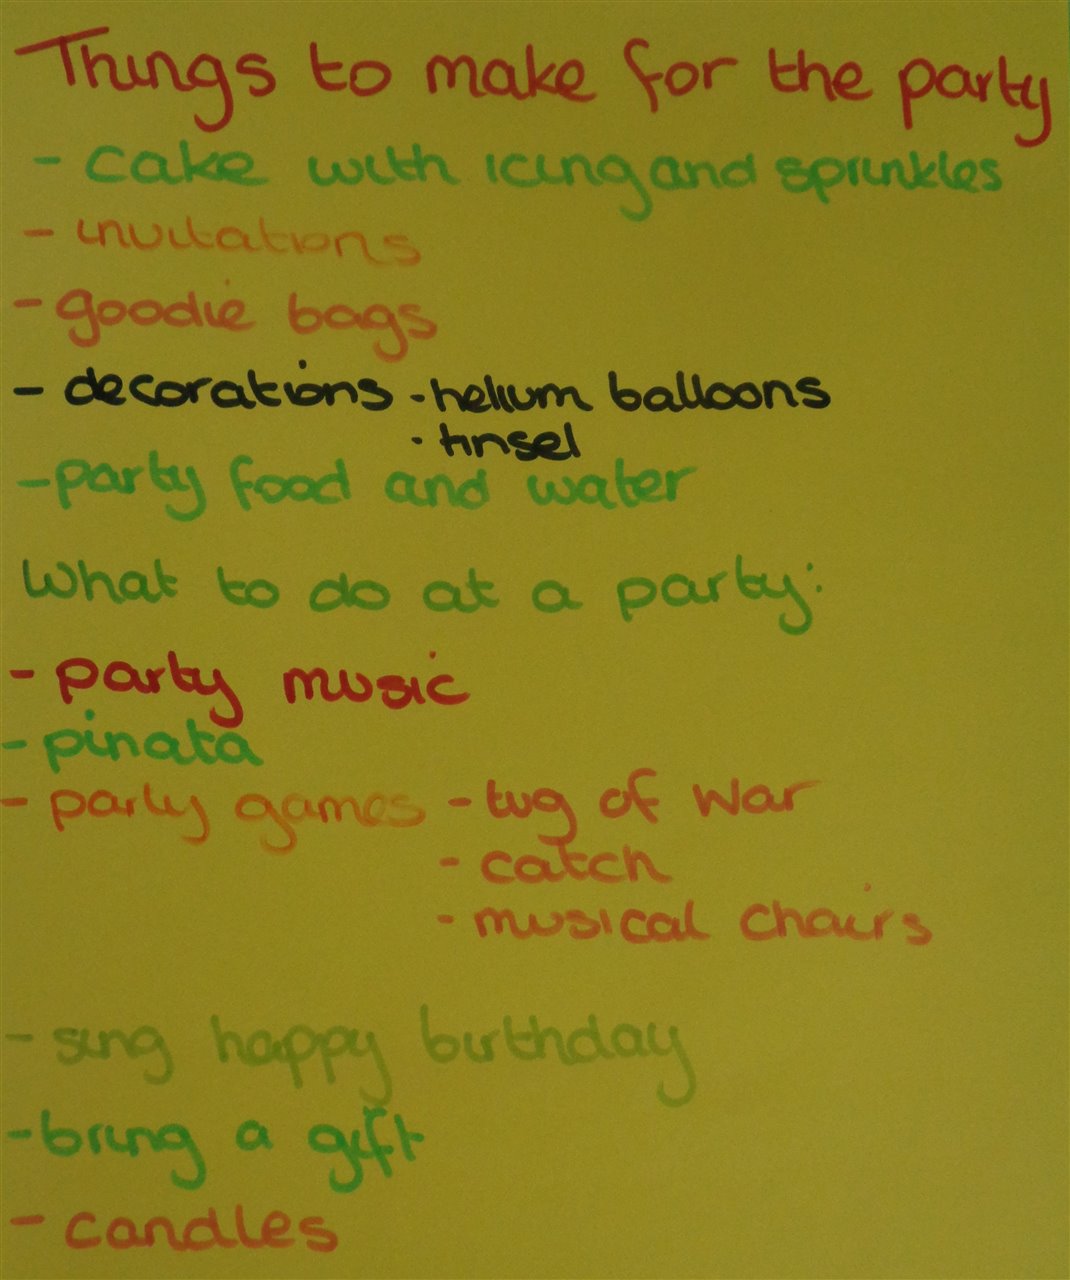 Things to make for the party
- cake with icing and sprinkles
- invitations
- goodie bags
- decorations · helium balloons
· tinsel
- party food and water
What to do at a party:
- party music
- pinata
- party games - tug of war
- catch
- musical chairs
- sing happy birthday
- bring a gift
- candles